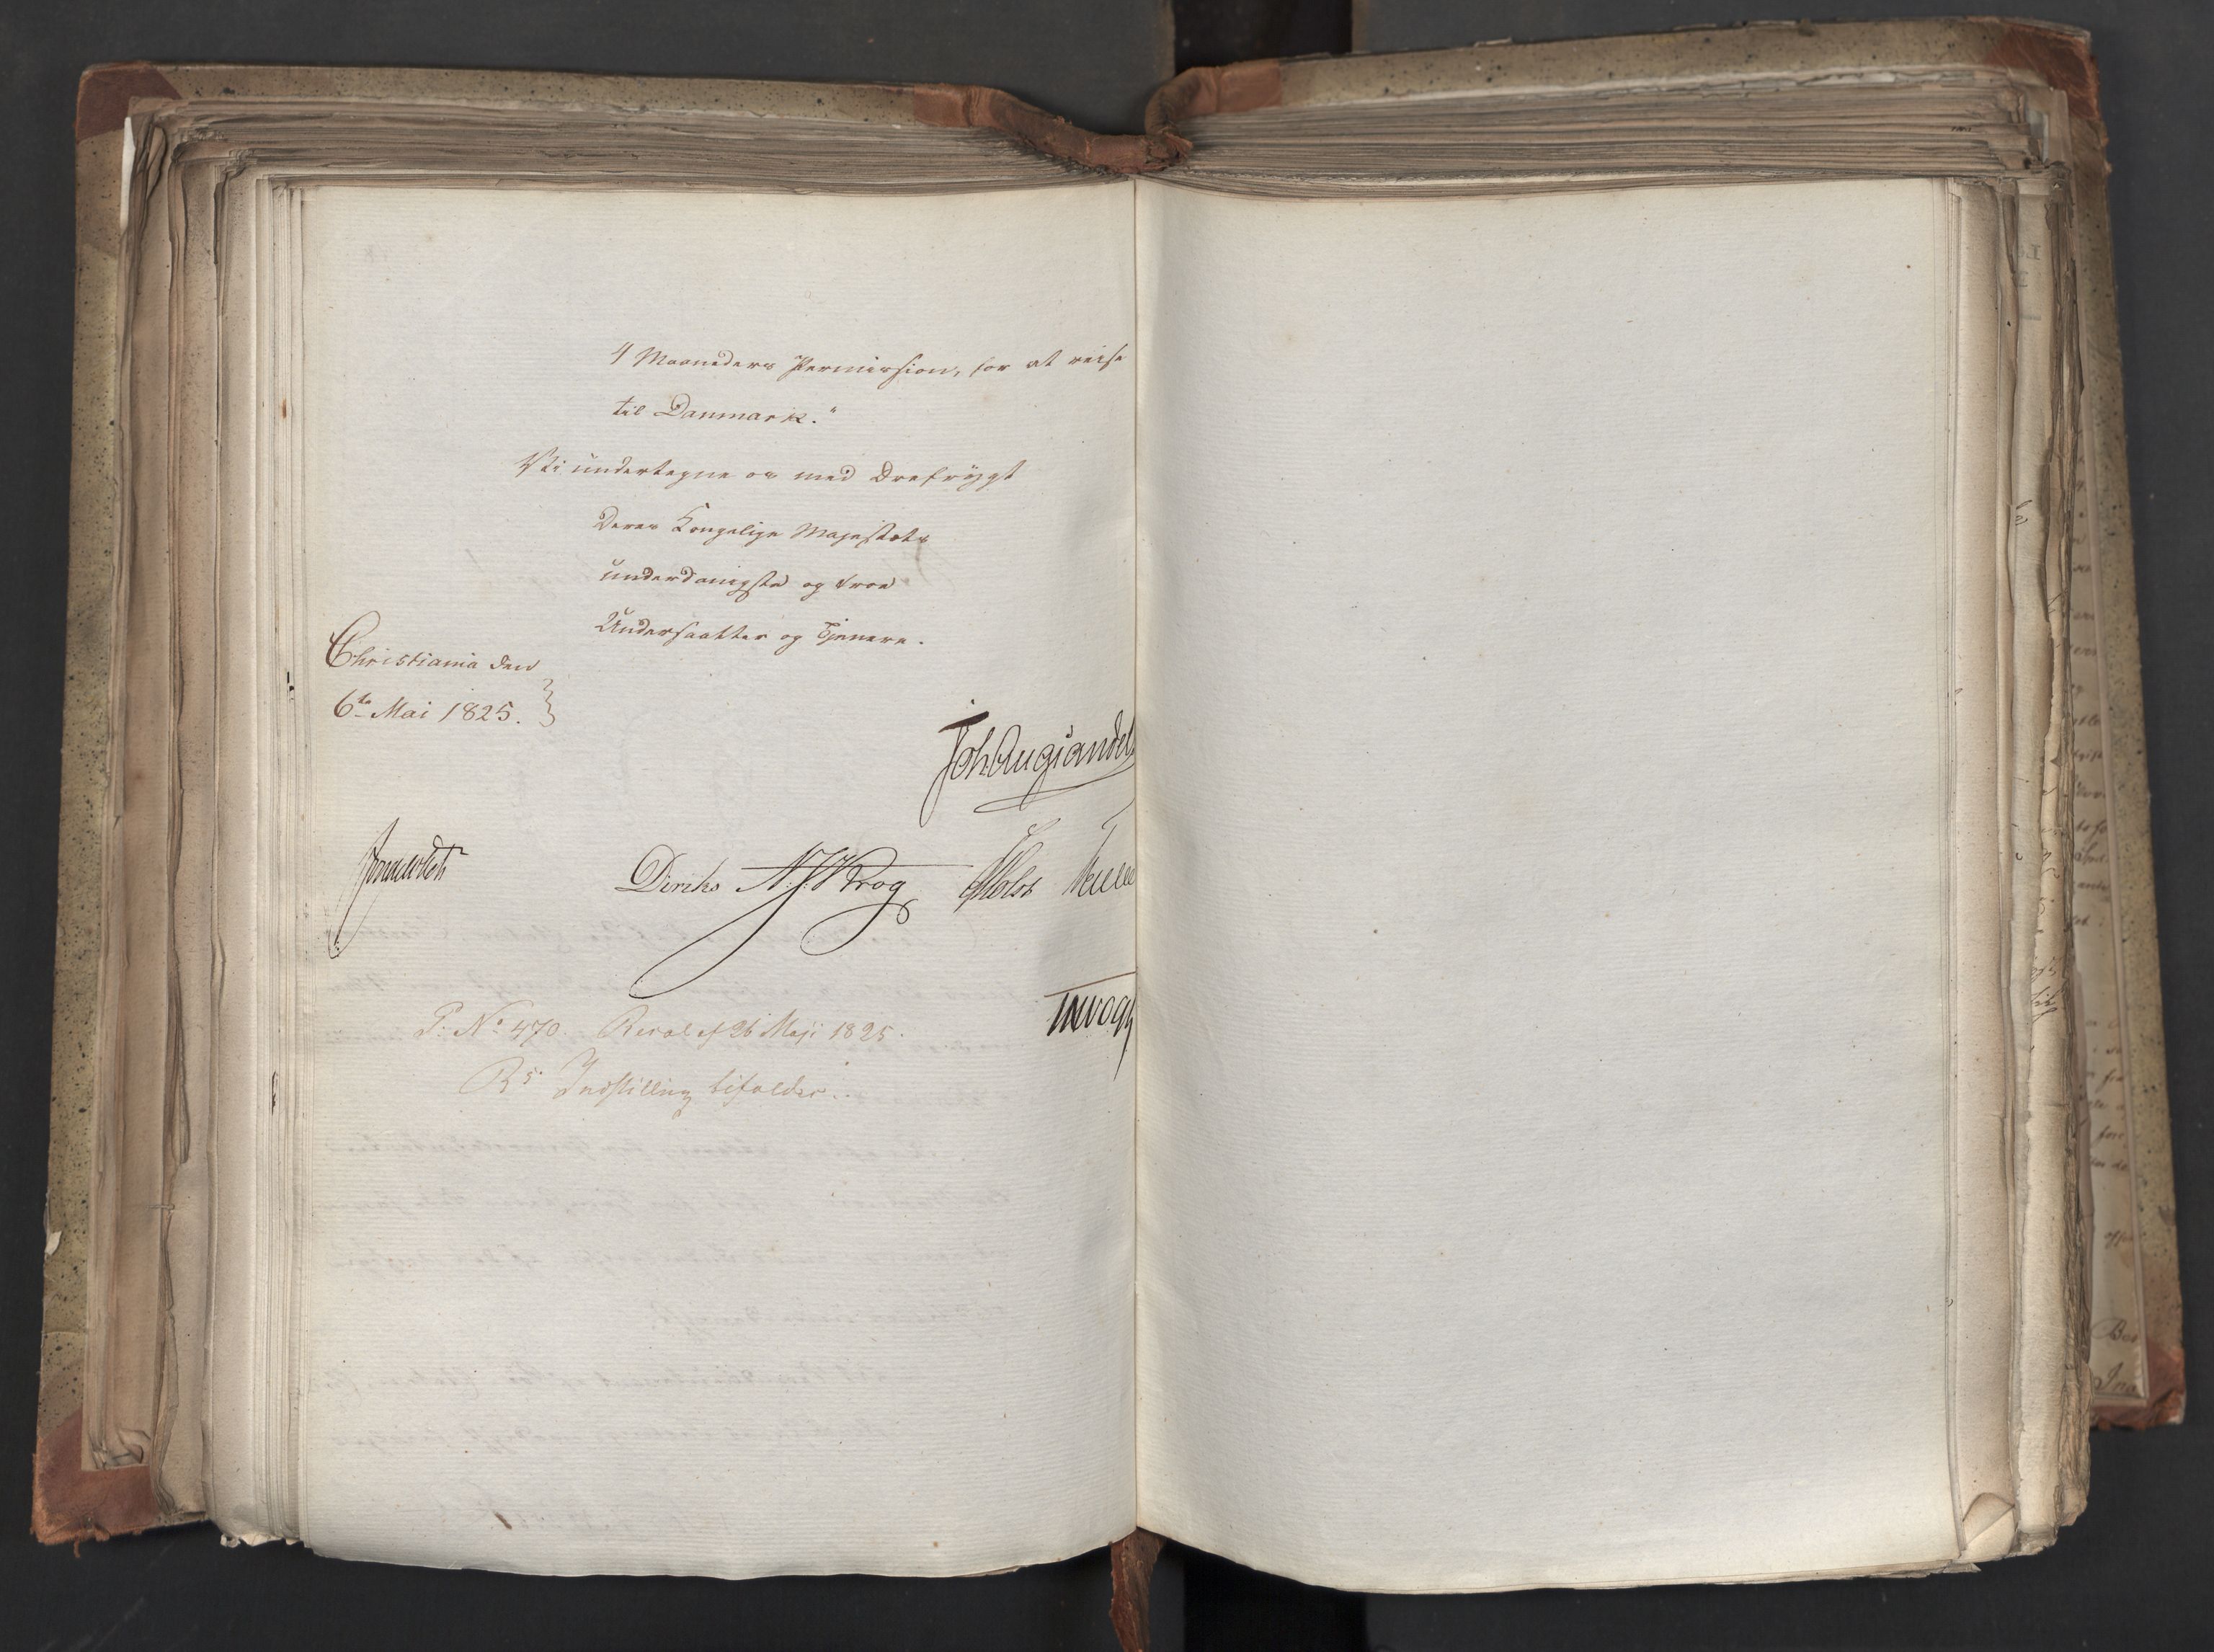 4 Maaneders Permission, for at reise
til Danmark."
Vi undertegne os med Ærefrygt
Deres Kongelige Majestæts
underdanigste og troe
Undersaatter og Tjenere.
Christiania den
6te Mai 1825.
Joh Aug Sandels
Diriks N. J. Krog PMolst
P: No 470. Resol af 26 Maji 1825.
Rs Indstilling bifaldes.